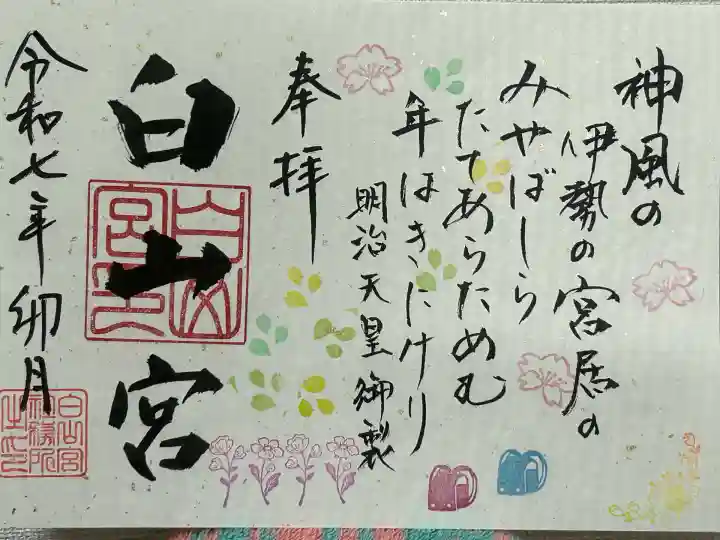 神風の
伊勢の宮居の
みやばしら
たてあらためむ
年はきにけり
明治天皇御製
奉拝
白山宮
白山宮印
令和七年卯月
白山宮
社務所
之印